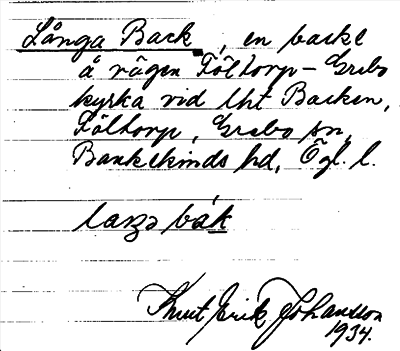 Långa Back, en backe
å vägen Föltorp – Grebo
kyrka vid lht Backen,
Föltorp, Grebo sn,
Bankekinds hd, Ögl. l.
laŋa bák
Knut Erik Johansson
1934.